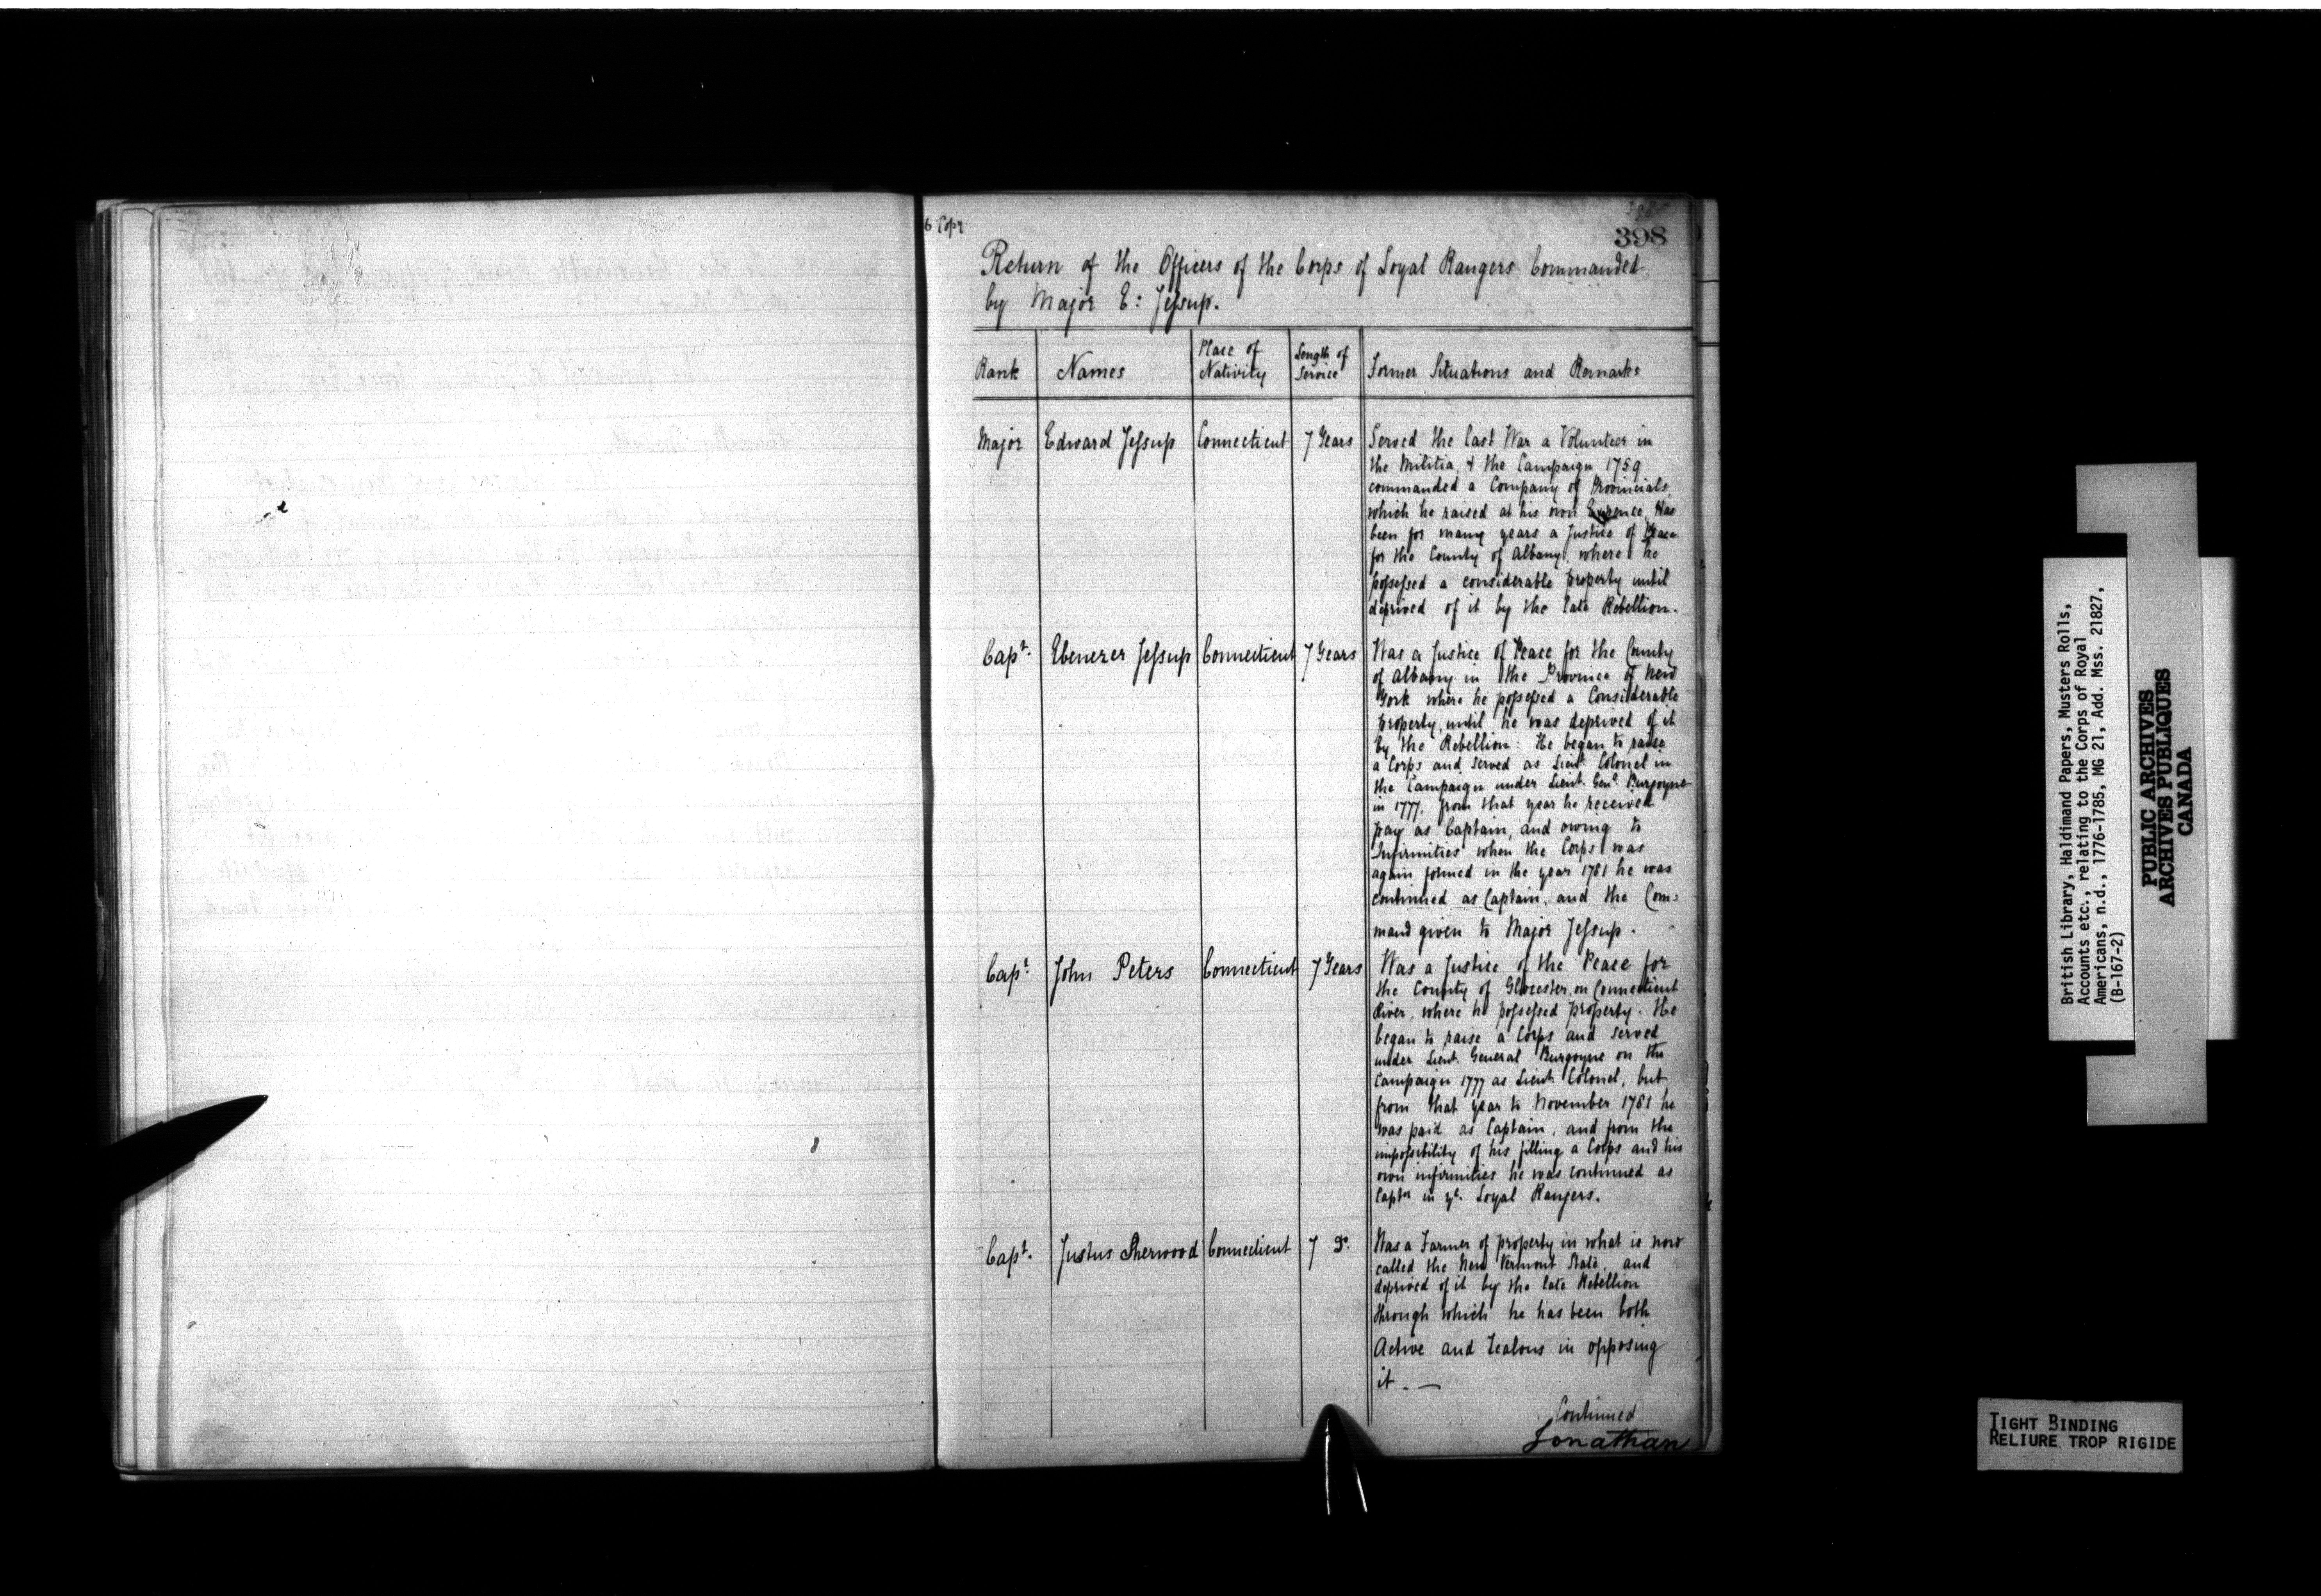 398
Return of the Officers of the Corps of Loyal Rangers Commanded
by Major E: Jessup.
Rank Names Place of Nativity Length of Service Former Situations and Remarks
Major Edward Jessup Connecticut 7 Years Served the last War a Volunteer in
the Militia, & the Campaign 1759
commanded a Company of Provincials,
which he raised at his own Expence, Has
been for many years a Justice of Peace
for the County of Albany, where he
possessed a considerable property until
deprived of it by the late Rebellion.
Capt. Ebenezer Jessup Connecticut 7 Years Was a Justice of Peace for the County
of Albany in the Province of New
York where he possessed a Considerable
property, until he was deprived of it
by the Rebellion: He began to raise
a Corps and served as Lieut. Colonel in
the Campaign under Lieut. Genl. Burgoyne
in 1777, from that year he received
pay as Captain, and owing to
Infirmities when the Corps was
again formed in the year 1781 he was
continued as Captain, and the Com=
mand given to Major Jessup.
Capt. John Peters Connecticut 7 Years Was a Justice of the Peace for
the County of Glocester, on Connecticut
River, where he possessed property. He
began to raise a Corps and served
under Lieut. General Burgoyne on the
Campaign 1777 as Lieut. Colonel, but
from that year to November 1781 he
was paid as Captain, and from the
impossibility of his filling a Corps and his
own infirmities he was continued as
Captn in ye. Loyal Rangers.
Capt. Justus Sherwood Connecticut 7 Do. Was a Farmer of property in what is now
called the New Vermont State, and
deprived of it by the late Rebellion
through which he has been both
Active and Zealous in opposing
it. —
Continued
Jonathan
British Library, Haldimand Papers, Musters Rolls,
Accounts etc., relating to the Corps of Royal
Americans, n.d., 1776-1785, MG 21, Add. Mss. 21827,
(B-167-2)
PUBLIC ARCHIVES
ARCHIVES PUBLIQUES
CANADA
TIGHT BINDING
RELIURE TROP RIGIDE